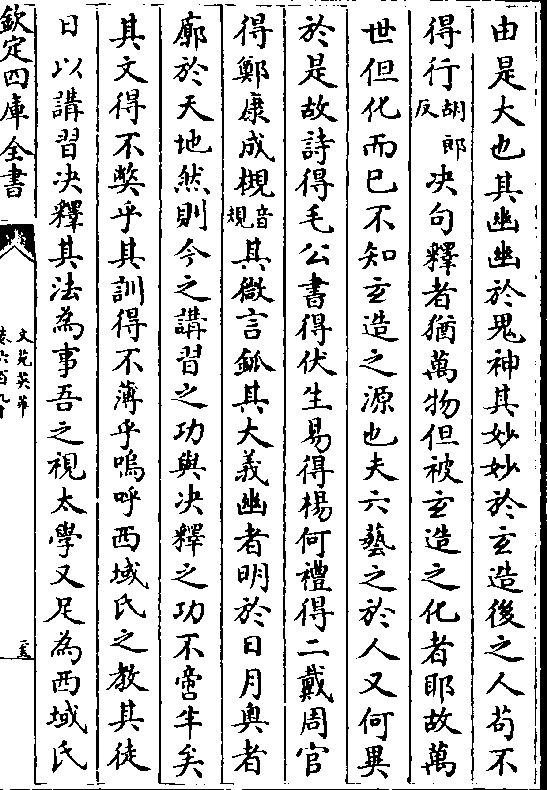 由是大也其幽幽於鬼神其妙妙於玄造後之人茍不
得行胡郎反决句釋者猶萬物但被玄造之化者耶故萬
世但化而已不知玄造之源也夫六藝之於人又何異
於是故詩得毛公書得伏生易得楊何禮得二戴周官
得鄭康成㮣音規其微言釽其大義幽者明於日月奥者
廓於天地然則今之講習之功與决釋之功不啻半矣
其文得不獘乎其訓得不薄乎嗚呼西域氏之教其徒
日以講習决釋其法為事吾之視太學又足為西域氏
欽定四庫全書
文苑英華
卷六百九十